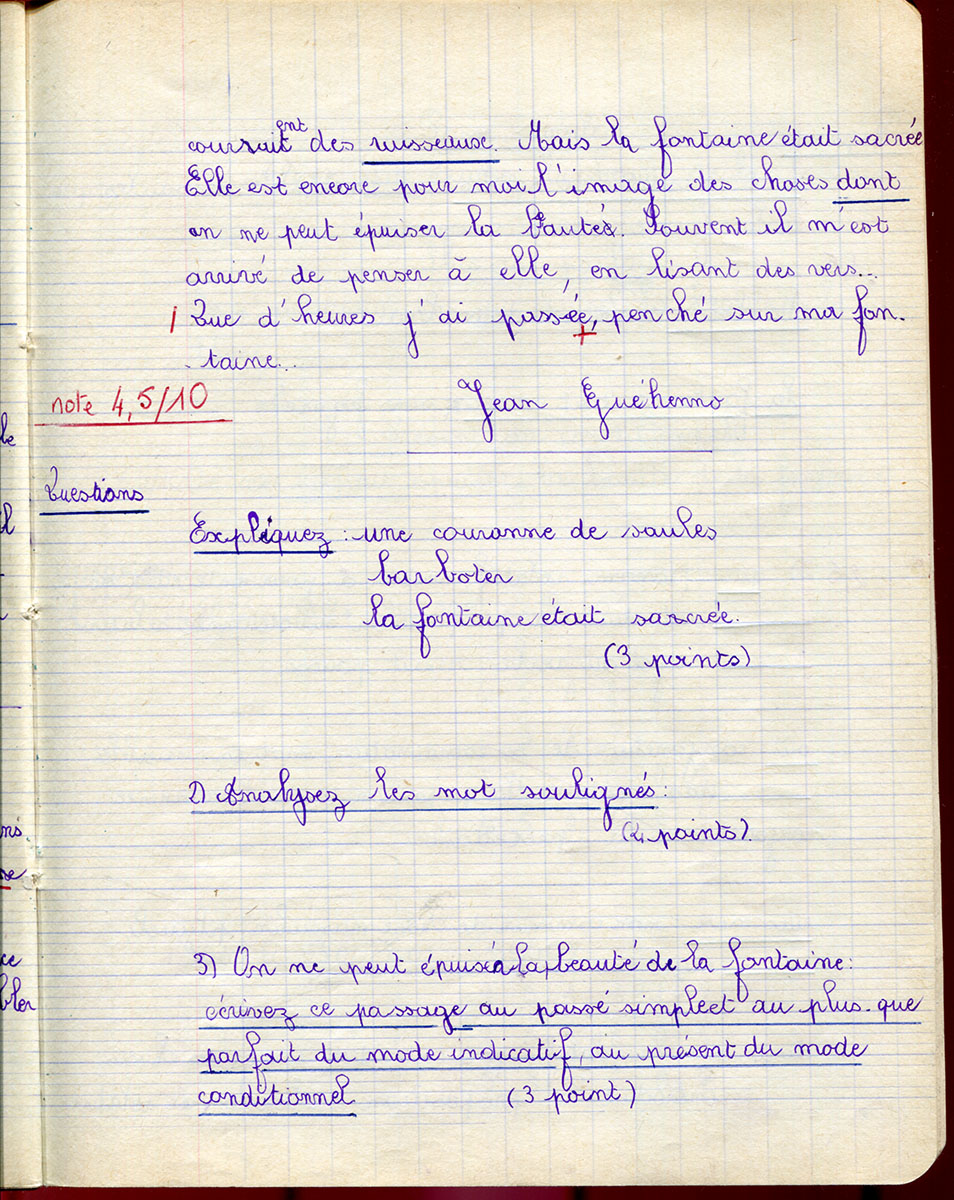 couraient des ruisseaux. Mais la fontaine était sacrée
Elle est encore pour moi l'image des choses dont
on ne peut épuiser la beauté. Souvent il m'est
arrivé de penser à elle, en lisant des vers...
Que d'heures j'ai passée, penché sur ma fon-
taine...
note 4,5/10
Jean Guéhenno
Questions
Expliquez : une couronne de saules
barboter
la fontaine était sacrée.
(3 points)
2) Analysez les mot soulignés :
(4 points).
3) On ne peut épuiser la beauté de la fontaine :
écrivez ce passage au passé simple et au plus-que
parfait du mode indicatif, au présent du mode
conditionnel (3 point)
le
l
ns.
se
ce
bler